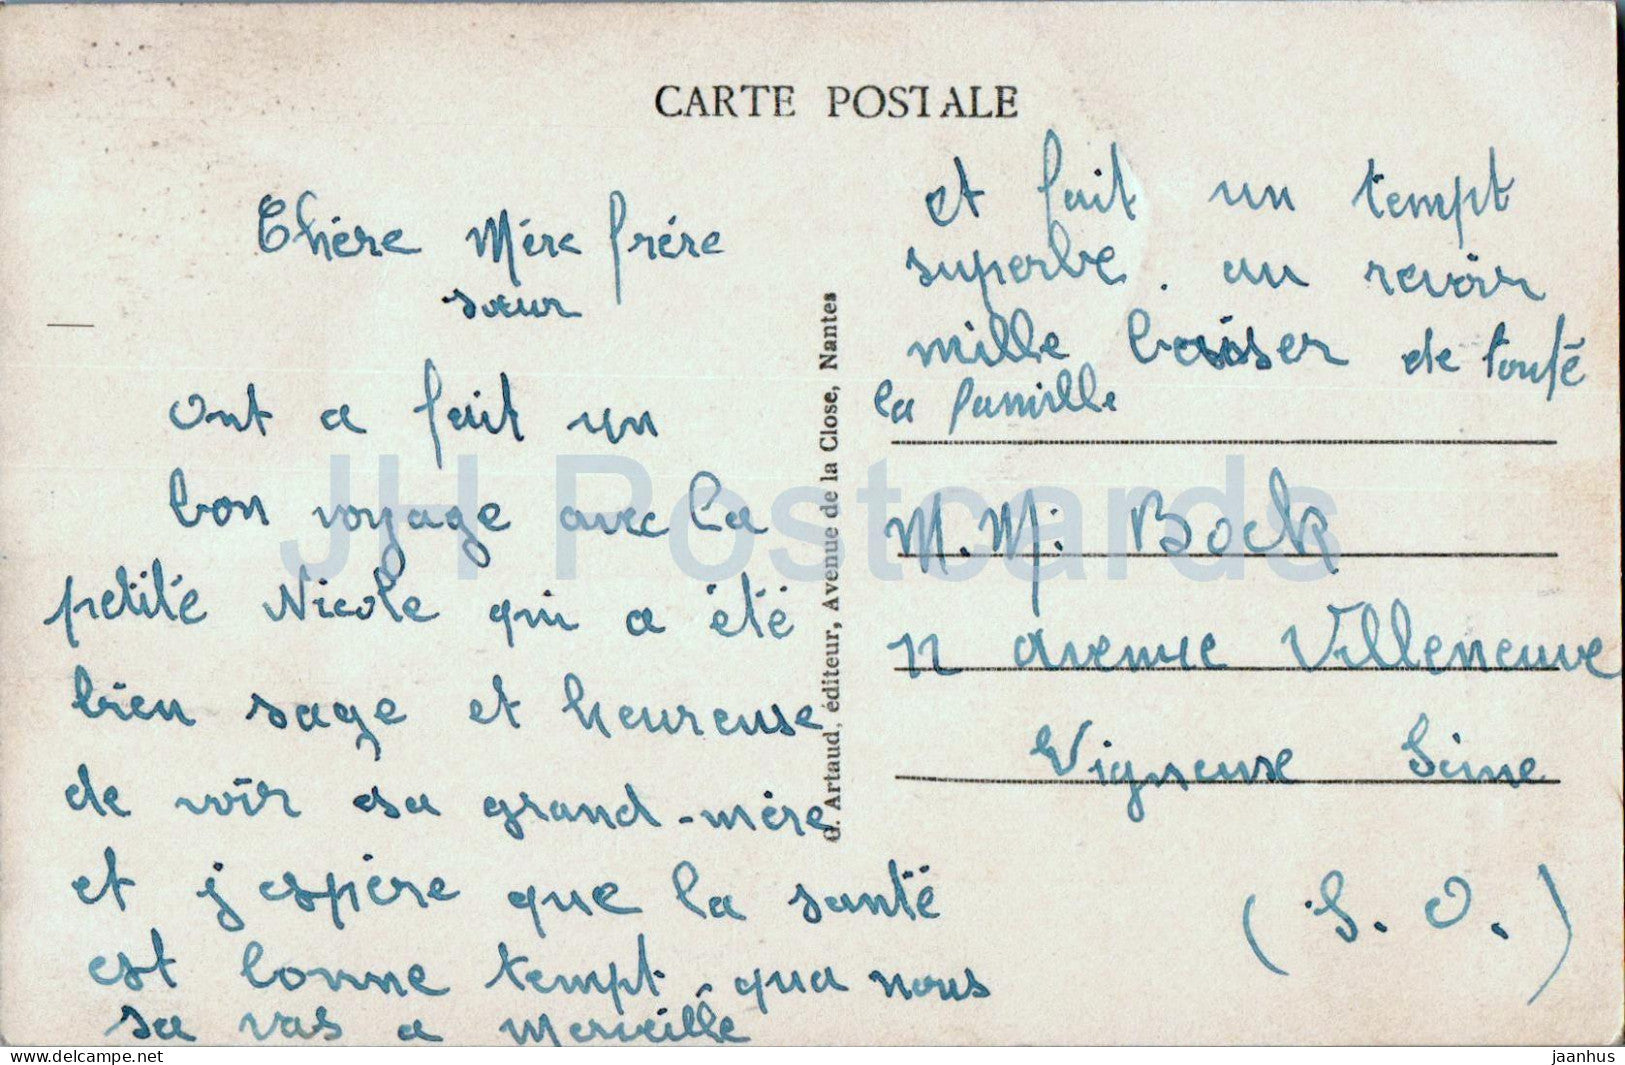 CARTE POSTALE
Chère Mère frère
sœur
Ont a fait un
bon voyage avec la
petite Nicole qui a été
bien sage et heureuse
de voir sa grand-mère
et j espère que la santé
est bonne tempt qua nous
sa vas a merveille
et fait un tempt
superbe. au revoir
mille baisser de toute
la famille
M. M. Bock
12 avenue Villeneuve
Vigneuse Seine
(S. O.)
G. Artaud, éditeur, Avenue de la Close, Nantes
JH Postcards
delcampe.net
jaanhus